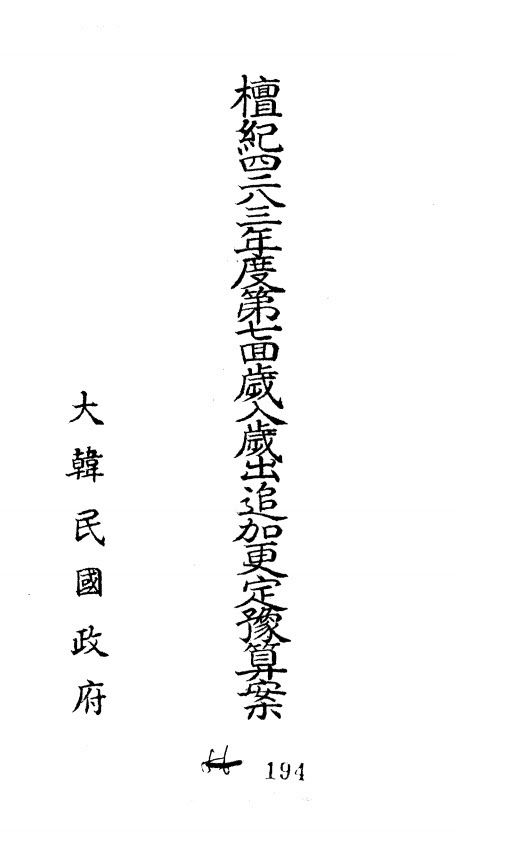 檀紀四二八三年度第七回歲入歲出追加更定豫算案
大韓民國政府
194